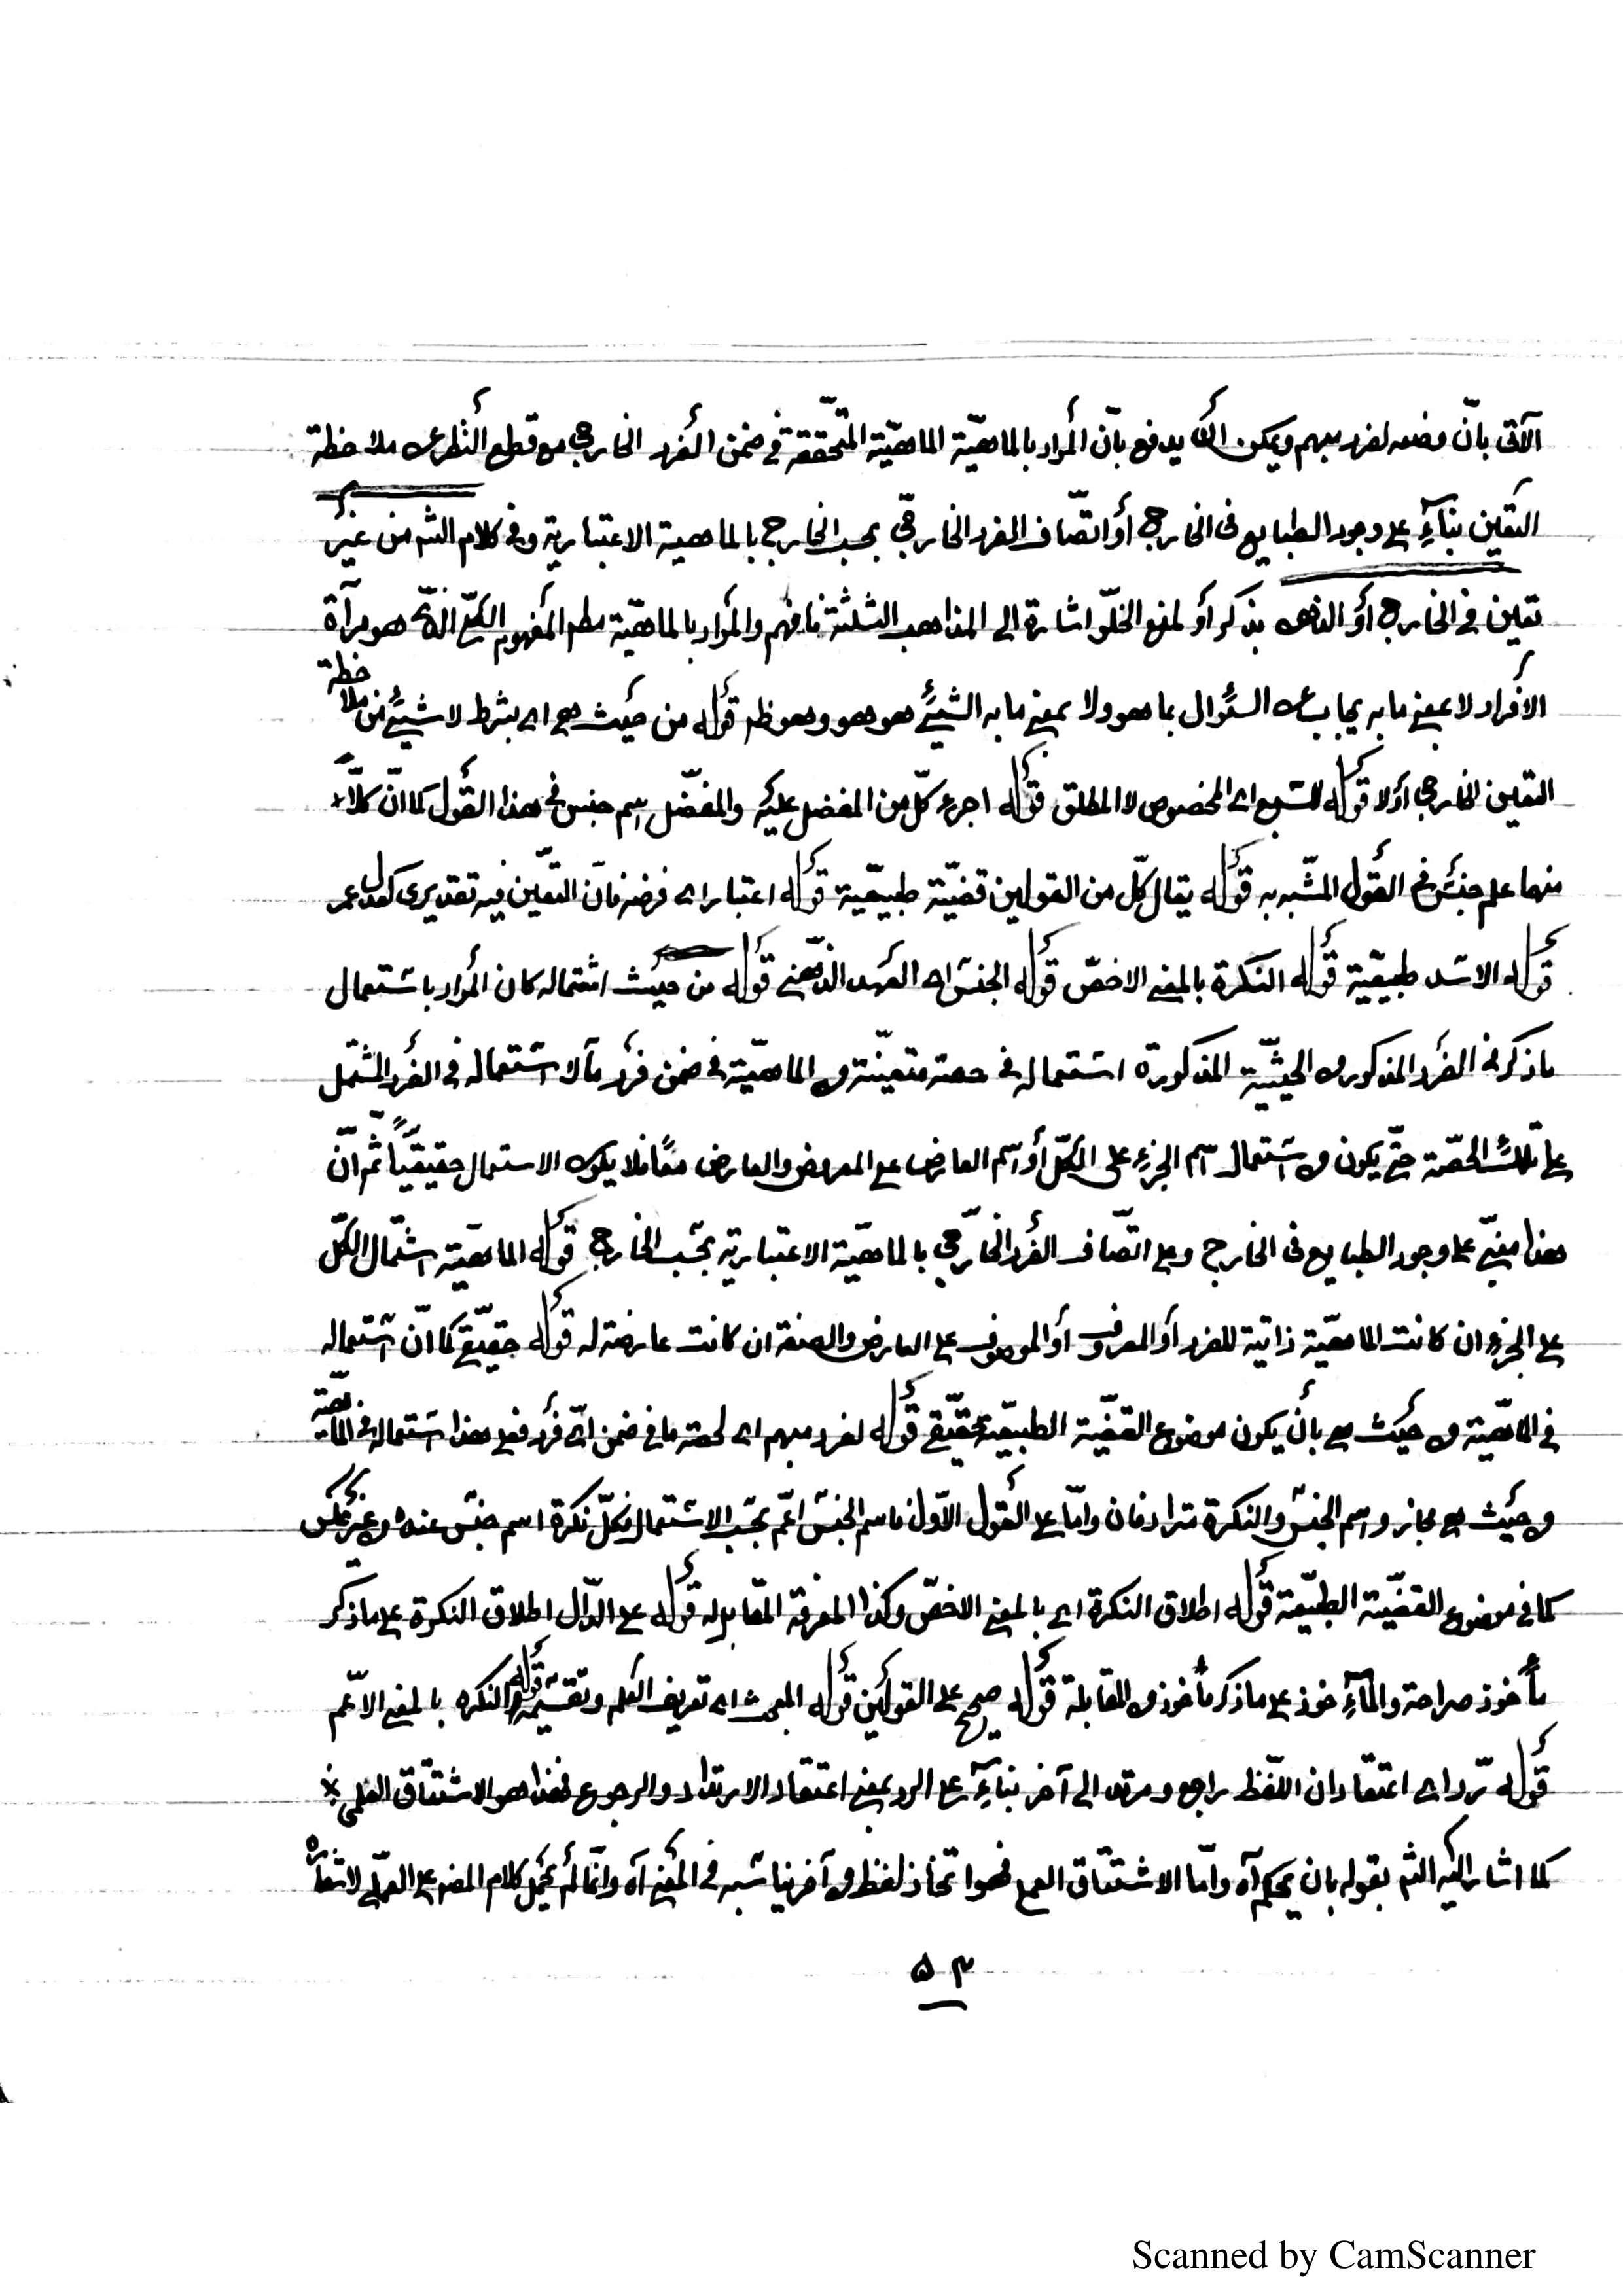 الآتى بأنّ وضعه لفرد مبهم ويمكن أن يدفع بأنّ المراد بالماهيّة الماهيّة المتحّققة فى ضمن الفرد الخارجى مع قطع النّظر عن ملاحظة
التعّين بناءً على وجود الطبايع فى الخارج أو اتّصاف الفرد الخارجّى بحسب الخارج بالماهية الاعتبارية وفى كلام الشم من غير
تعين فى الخارج أو الذهن بذكر أو لمنع الخلّو اشارة الى المذاهب الثلثة فافهم والمراد بالماهيّة مطم المفهوم الكلّى الذّى هو مرآة
الافراد لا بمعنى ما به يجاب عن السئوال بما هو ولا بمعنى ما به الشيئ هو هو وهو ظم قوله من حيث هى اى بشرط لا شيئ من ملاحظة
التعين الخارجى أولا قوله للسبع اى المخصوص لا المطلق قوله اجرء كلّ من المفضل عليه والمفضّل اسم جنس فى هذا القول كما انّ كلاًّ
منهما علم جنس فى القول المشّبه به قوله يقال كلّ من القولين قضيّة طبيعّية قوله اعتبار اى فرضى فانّ التعّين فيه تقديرى كعدل عمر
قوله الاسد طبيعّية قوله النكرة بالمعنى الاخصّ قوله الجنس اى العهد الذّهنى قوله من حيث اشتماله كان المراد باستعمال
ما ذكر فى الفرد المذكور من الحيثيّة المذكورة استعماله فى حصة متعيّنة من الماهيّة فى ضمن فرد ما لا استعماله فى الفرد المشتمل
على تلك الحصّة حتّى يكون من استعمال اسم الجزء على الكلّ أو اسم العارض على المعروض والعارض معًا فلا يكون الاستعمال حقيقيّاً ثّم انّ
هذا مبنّى على وجود الطبايع فى الخارج وعلى اتّصاف الفرد الخارّجى بالماهيّة الاعتبارية بحسب الخارج قوله الماهيّة اشتمال الكلّ
على الجزء ان كانت الماهيّة ذاتية للفرد أو المعروف أو الموصوف على العارض والصفة ان كانت عارضة له قوله حقيقّى كما انّ استعماله
فى الماهيّة من حيث هى بأن يكون موضوع القضيّة الطبيعيّة حقيقّى قوله لفرد مبهم اى لحصة ما فى ضمن اىّ فرد فعلى هذا استعماله فى الماهيّة
من حيث هى مجاز واسم الجنس والنكرة مترادفان وامّا على القول الاوّل فاسم الجنس اعّم بحسب الاستعمال فكلّ نكرة اسم جنس عنده من غير عكس
كما فى موضوع القضيّة الطبيعّية قوله اطلاق النكرة اى بالمعنى الاخصّ وكذا المعرفة المقابل له قوله على الدّال اطلاق النكرة على ما ذكر
مأخوذ صراحة والمأخوذ على ما ذكر مأخوذ من المقابلة قوله صحيح على القولين قوله المبحث اى تعريف العلم وتقسيمه قوله والنكره بالمعنى الاعّم
قوله تردّ اى اعتقاد ان اللفظ راجع ومرتد الى آخر بناءً على الرد بمعنى اعتقاد الارتداد والرجوع فهذا هو الاشتقاق العلمى
كما اشار اليه الشم بقوله بان يحكم آه وامّا الاشتقاق العملى فهو اتخاذ لفظ من آخر يناسبه فى المعنى آه وانّما لم يحمل كلام المصم على العملّى لاشعاره
٥٣
Scanned by CamScanner